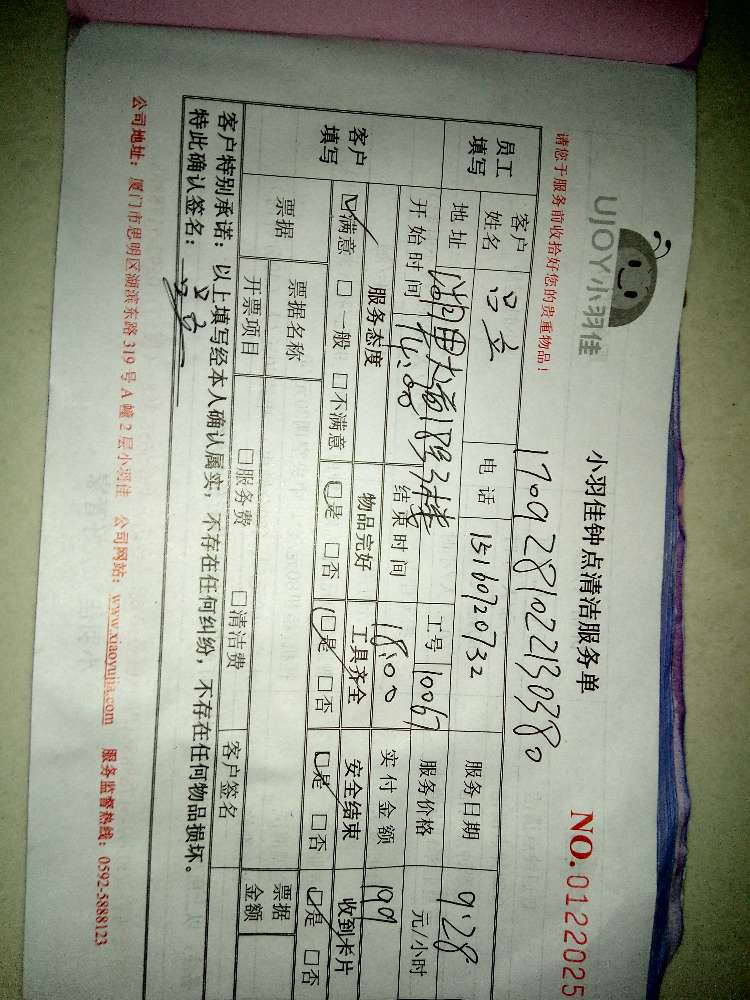 UJOY小羽佳
小羽佳钟点清洁服务单
NO.0122025
请您于服务前收拾好您的贵重物品！
170928102230380
员工填写 客户姓名 吕立 电话 15160720732 服务日期 9.28
地址 工号 10067 服务价格 元/小时
开始时间 14:00 结束时间 18:00 实付金额 199
客户填写 服务态度 物品完好 工具齐全 安全结束 收到卡片
☑满意 □一般 □不满意 ☑是 □否 ☑是 □否 ☑是 □否 ☑是 □否
票据 票据名称 □服务费 □清洁费 客户签名 票据金额
开票项目
客户特别承诺：以上填写经本人确认属实，不存在任何纠纷，不存在任何物品损坏。
特此确认签名：吕立
公司地址：厦门市思明区湖滨东路319号A幢2层小羽佳 公司网站：www.xiaoyujia.com 服务监督热线：0592-5888123